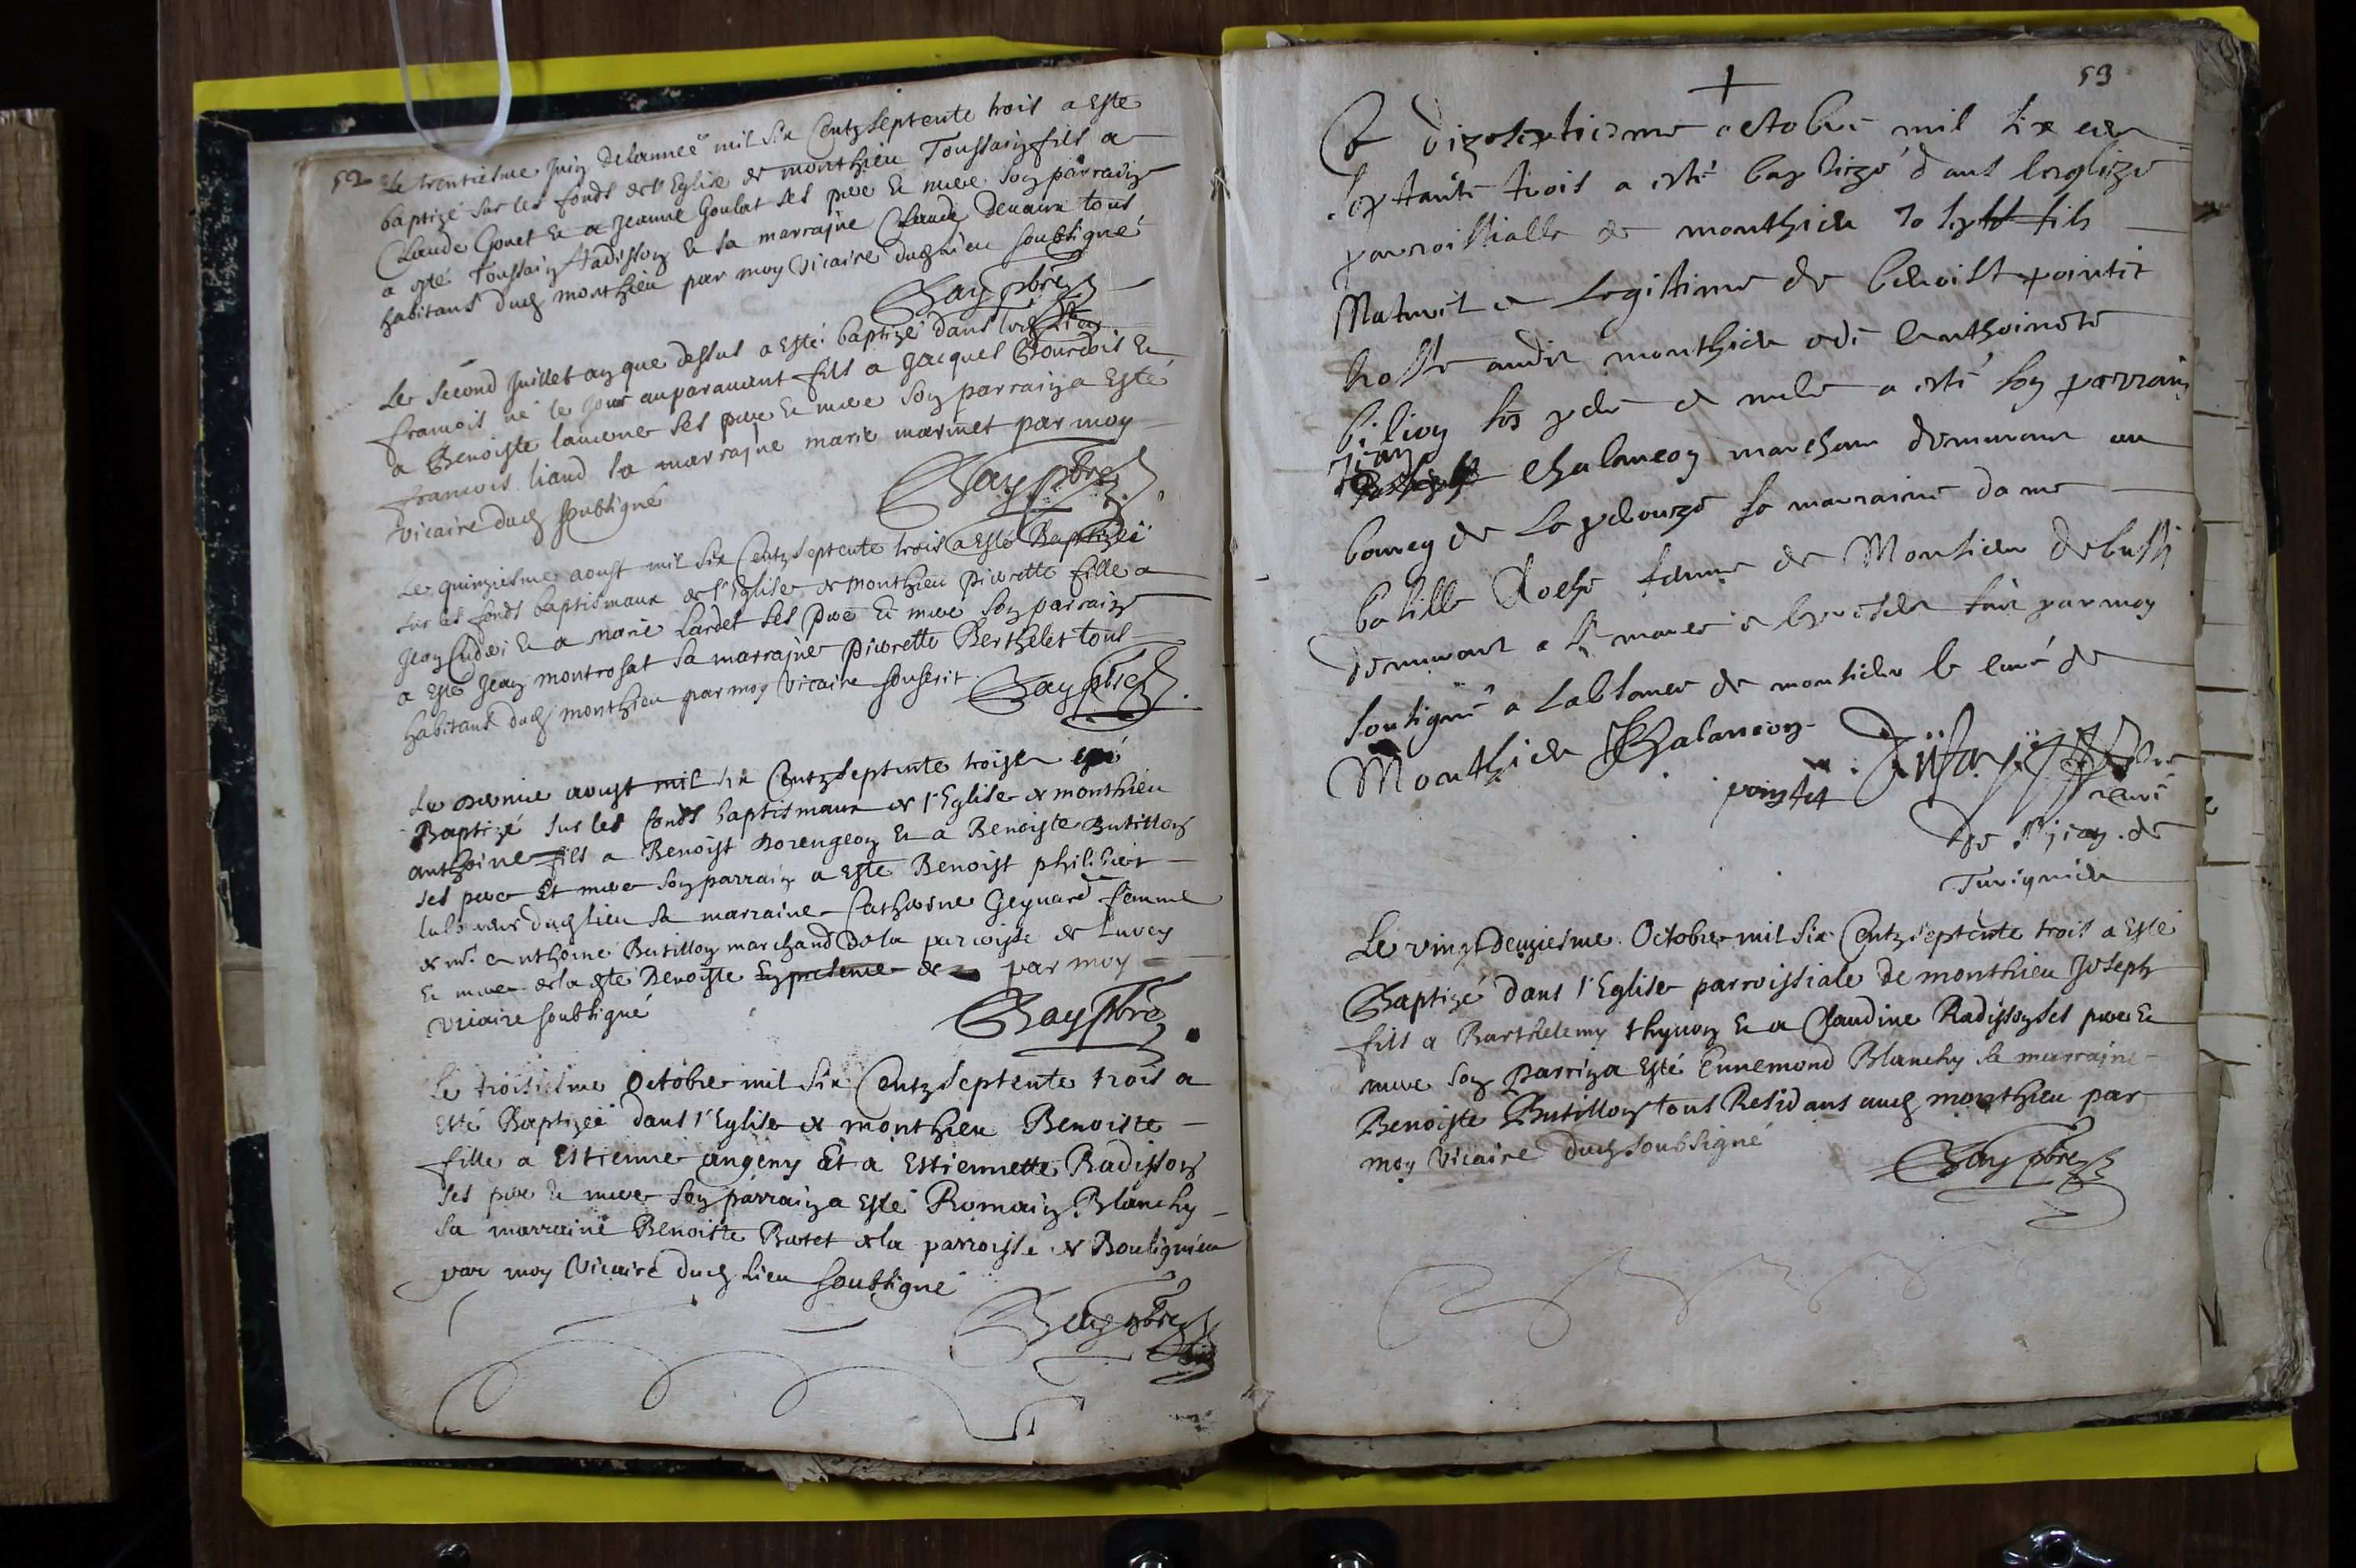 52
Le trentiesme Juin de lannée mil six Centz septente trois a Esté
baptizé sur les fonds de l'Eglise de monthieu Toussainz fils a
Claude Gonet Et a Jeanne Goulat ses pere Et mere son parrain
a esté Toussainz Radisson Et sa marrajne Claudy Devaux tous
habitans dud monthieu par moy vicaire dud lieu soubsigné
Bay pbre
Le second Juillet an que dessus a Esté baptizé dans lad
francois né le jour auparavant fils a Jacques Bourdois Et
a Benoiste ses pere Et mere son parrain a Esté
francois liaud sa marrajne marie marinet par moy
vicaire dud soubsigné
Bay pbre
Le quinziesme aoust mil six Centz septente trois a Esté Baptizeé
sur les fonds baptismaux de l'Eglise de monthieu Pierrette fille a
Jean Et a marie Lardet ses pere Et mere son parrain
a esté Jean montrosat sa marrajne Pierrette Berthelet tous
habitans dud monthieu par moy vicaire souscrit
Bay pbre
Le dernier aoust mil six Centz septente trois a esté
Baptizé sur les fonds baptismaux de l'Eglise de monthieu
anthoine fils a Benoist Et a Benoiste Butillon
ses pere Et mere son parrain a Esté Benoist philibert
dud lieu sa marraine Catherine Geynard femme
de mr. anthoine Butillon marchand de la parroisse de
Et mere de la dte Benoiste En presence de par moy
vicaire soubsigné
Bay pbre
Le troisiesme Octobre mil six Centz septente trois a
esté Baptizeé dans l'Eglise de monthieu Benoiste
fille a Estienne angeny Et a Estiennette Radisson
ses pere Et mere son parrain a Esté Romain Blanchy
sa marraine Benoiste Butet de la parroisse de Bouligneu
par moy Vicaire dud lieu soubsigné
Bay pbre
53
Ce dizeseptiesme octobre mil six cen
septante trois a esté baptizé dans leglize
parroissialle de monthieu fils
Naturel et Legistime de benoist pointet
hoste audit monthieu et de anthoinete
bilion ses pere et mere a esté son parrain
Jean Chalancon marchant demurant au
bourg de La perouze sa marraine dame
femme de Monsieur
demurant a par moy
soutigné a Labsance de monsieur le curé de
Monthieu Chalancon
pointet
curé
de St jean de
Turigneu
Le vingt deuziesme Octobre mil six Centz septente trois a Esté
Baptizé dans l'Eglise parroissiale de monthieu Joseph
fils a Barthelemy thynon Et a Claudine Radisson ses pere Et
mere son parrin a Esté Ennemond Blanchy sa marrajne
Benoiste Butillon tous Residans aud monthieu par
moy vicaire dud soubsigné
Bay pbre